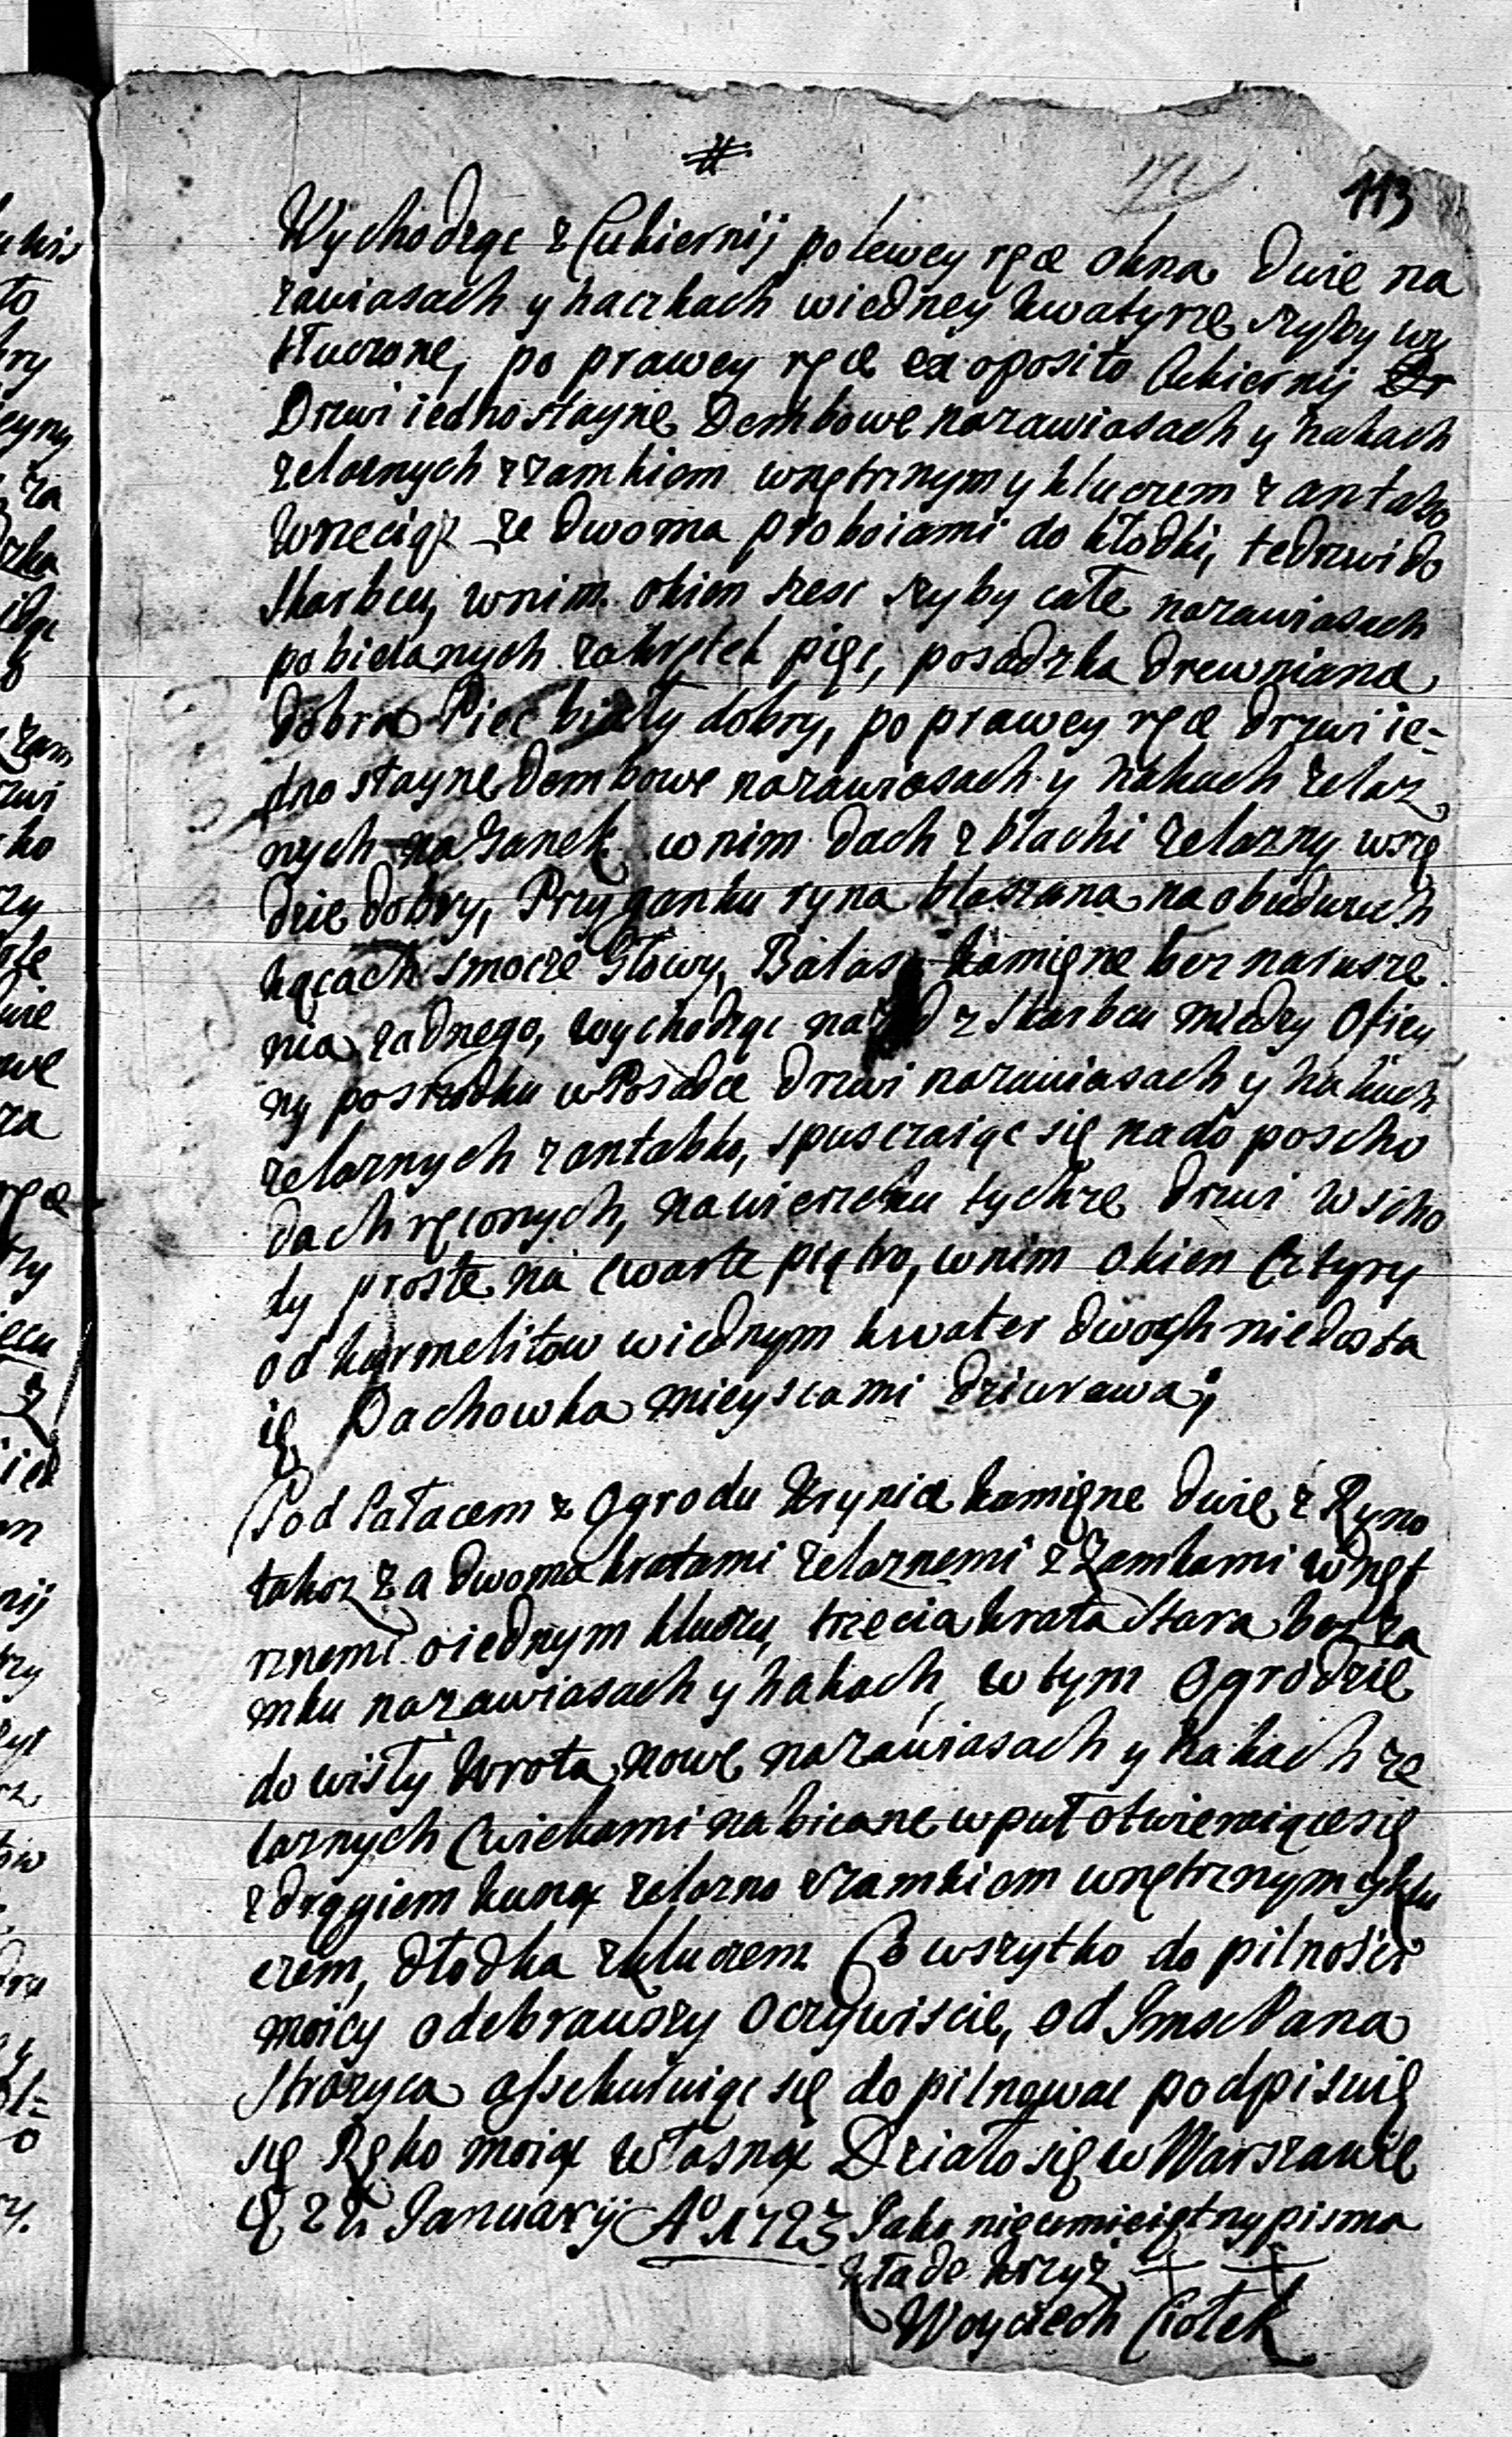 #
113
Wychodząc z Cukiernij po lewey ręce okna dwie na
zawiasach y haczkach wiedney kwatyrze szyby wy
tłuczone, po prawey ręce ex oposito Cukiernij
Drzwi iednostayne Dembowe nazawiasach y hakach
zelaznych zzamkiem wnętrznym y kluczem z antabo
wrzeciądz ze dwoma proboiami do kłodki, te drzwi do
skarbcu, wnim okien szesc szyby całe nazawiasach
pobielanych zakrętek pięc, posadzka drewniana
dobra Piec biały dobry, po prawey ręce drzwi ie=
dnostayne dembowe nazawiasach y hakach zelaz
nych na Ganek wnim dach z blachi zelazny wszę
dzie dobry, Przy ganku ryna blaszana na obudwuch
kącach smocze Głowy, Balasy kamięne bez narusze
nia zadnego, wychodząc nazad z skarbcu miedzy Oficy
ny posrzodku w Posadce drzwi nazawiasach y hakach
zelaznych z antabko, spuszczaiąc się nado poscho
dach ręconych, nawierzchu tychze drzwi wscho
dy proste na czwarte piętro, wnim okien cztyry
od karmelitow wiednym kwater dwoch niedosta
ię Dachowka mieyscami dziurawa;
Pod Pałacem z Ogrodu Krynice kamięne dwie z Ryno
takoz za dwoma kratami zelaznemi z Zamkami wnęt
rznemi oiednym kluczu, trzecia krata stara bez za
mku nazawiasach y hakach, w tym Ogrodzie
do wisły wrota nowe nazawiasach y hakach ze
laznych cwiekami nabicane wpuł otwieraiące się
z drągiem kuną zelazno zzamkiem wnętrznym y klu
czem, kłodka zkluczem Co wszytko do pilności
moiey odebrawszy oczywiscie, od Jmsc Pana
Strozyca assekuruiąc się do pilnowac podpisuię
się Ręko moią własną Działo się w Warszawie
22 January Ao 1723 Jako nieumieiętny pisma
kłade krzyż + +
Woyciech Ciołek